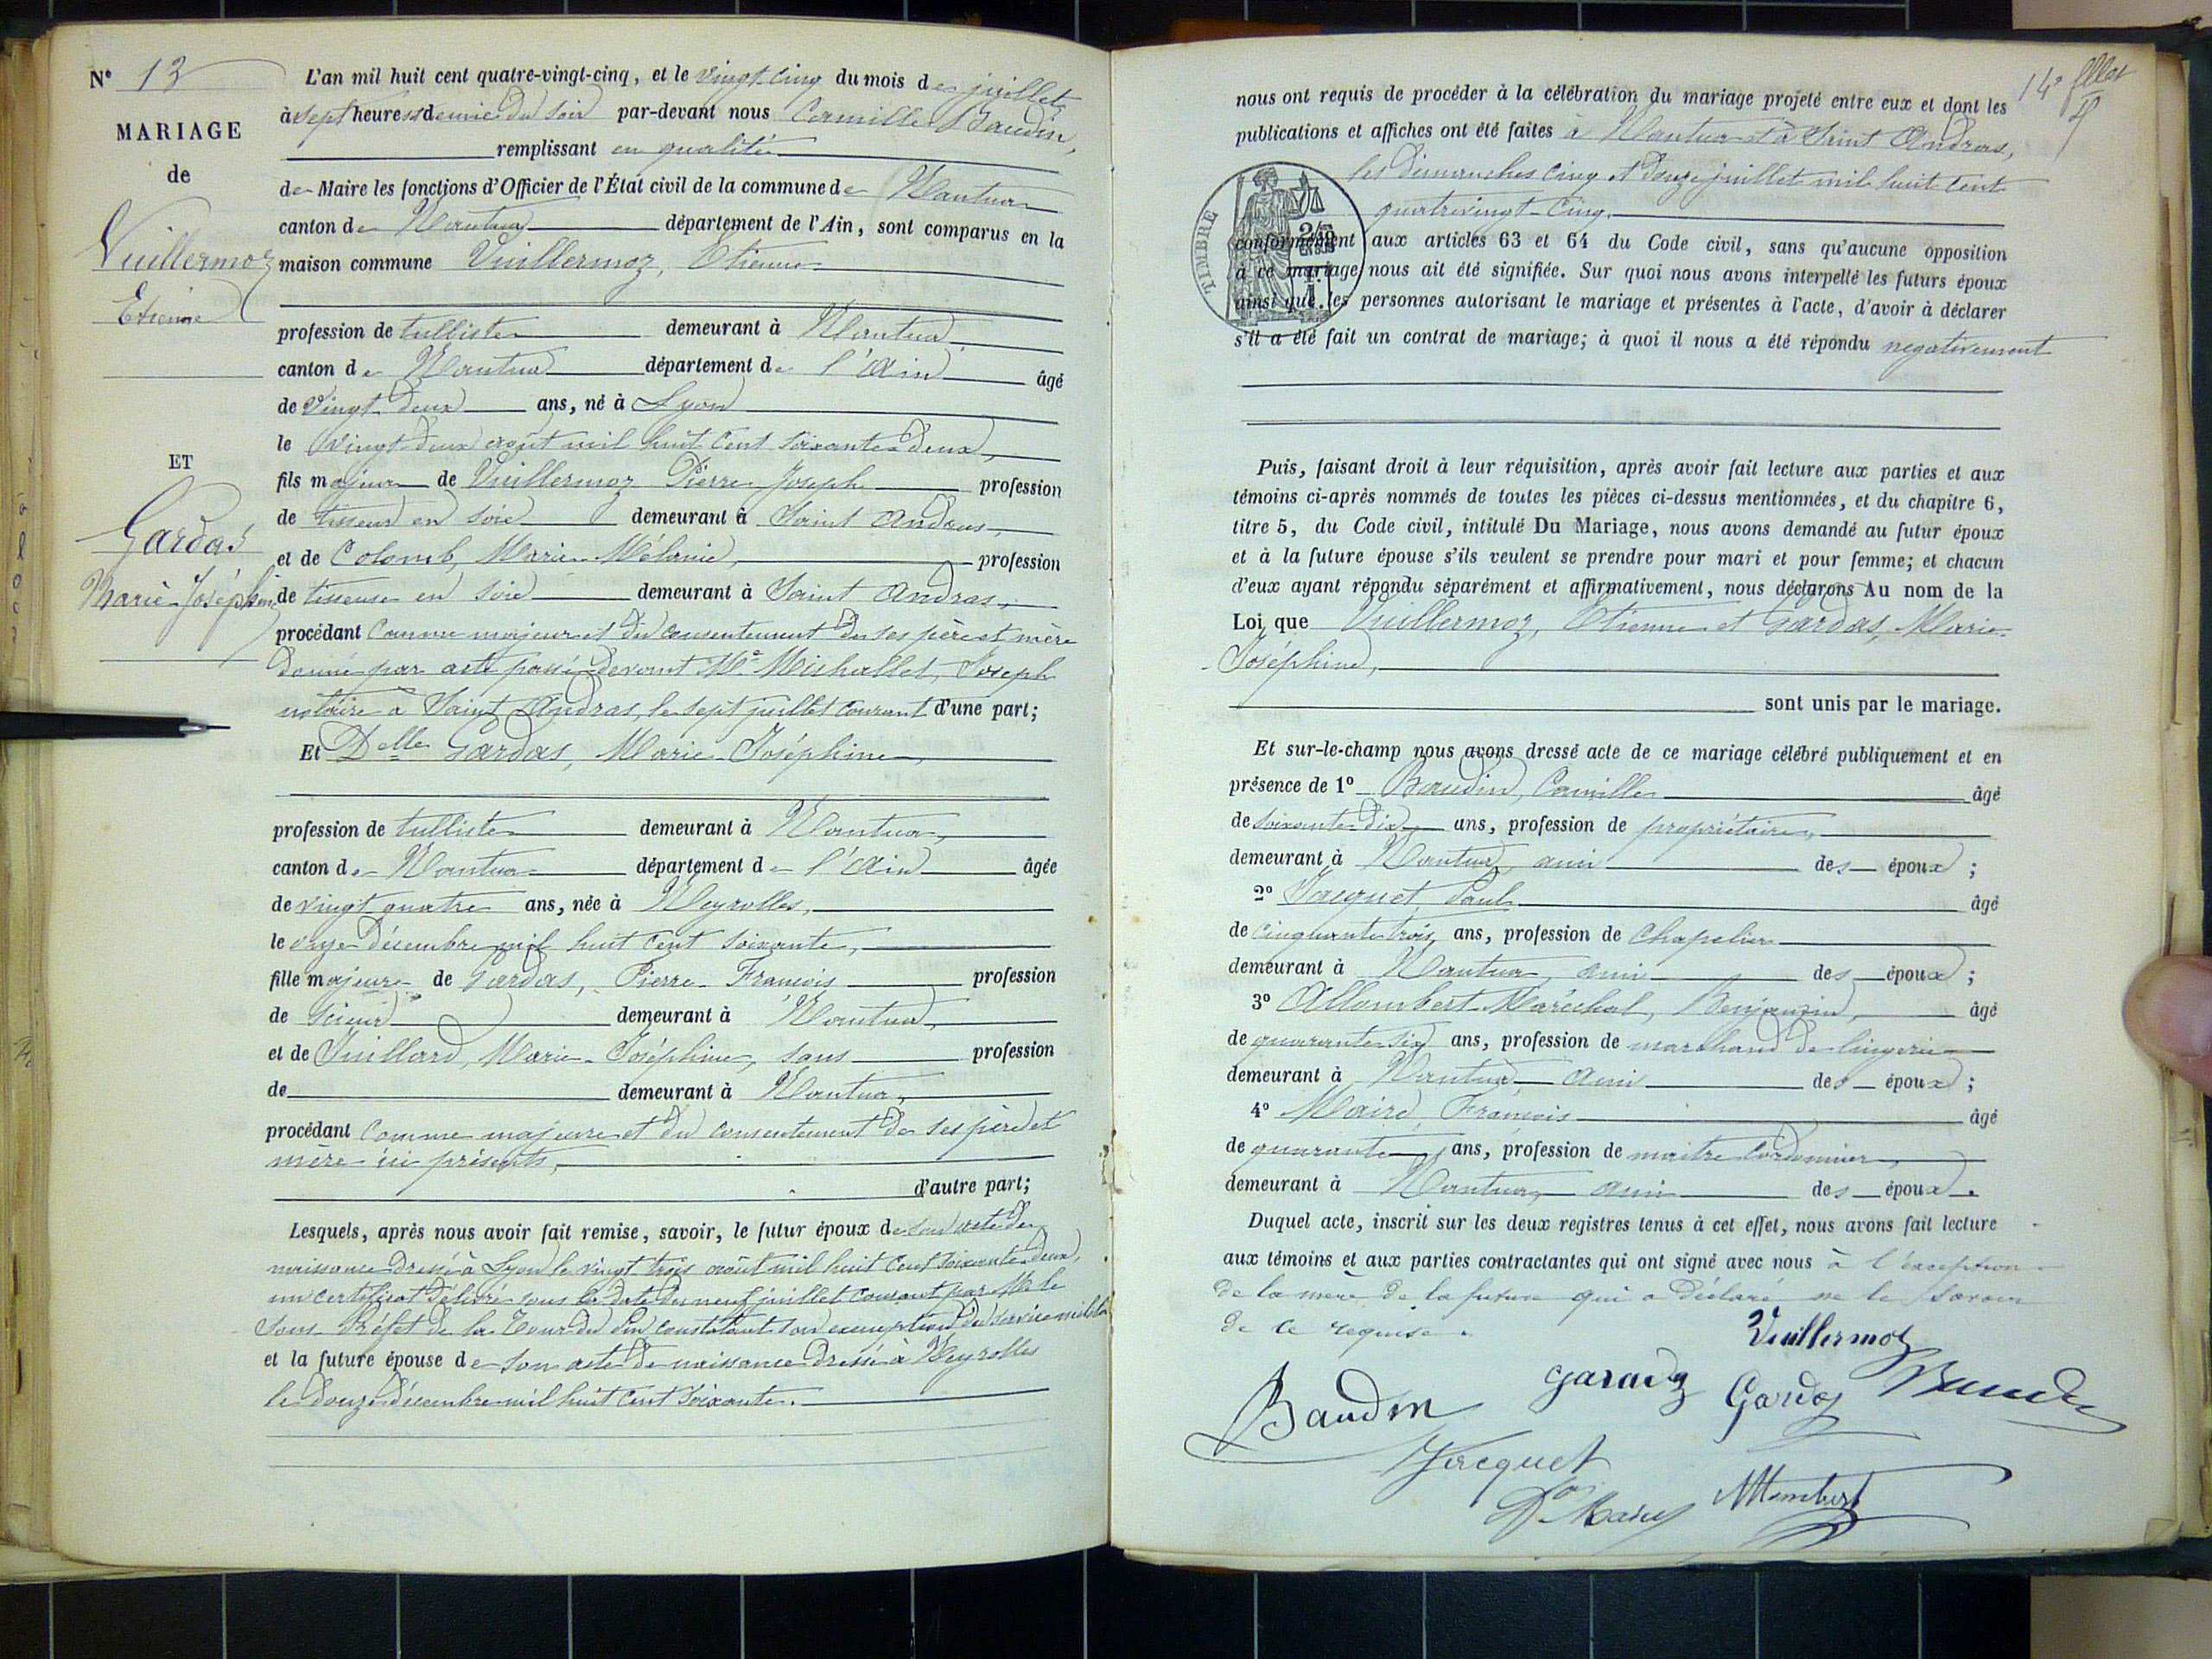 N° 13
MARIAGE
de
Vuillermoz
Etienne
ET
Gardas
Marie Joséphine
L'an mil huit cent quatre-vingt-cinq, et le vingt cinq du mois de juillet
à sept heures & demie du soir par-devant nous Camille Baudin,
remplissant en qualité
de Maire les fonctions d'Officier de l'État civil de la commune de Nantua
canton de Nantua département de l'Ain, sont comparus en la
maison commune Vuillermoz, Etienne
profession de tulliste demeurant à Nantua
canton de Nantua département de l'Ain âgé
de vingt deux ans, né à Lyon
le vingt deux août mil huit cent soixante deux,
fils majeur de Vuillermoz Pierre Joseph profession
de tisseur en soie demeurant à Saint Andras,
et de Colomb, Marie Mélanie, profession
de tisseuse en soie demeurant à Saint Andras,
procédant comme majeur et du consentement de ses père et mère
donné par acte passé devant Me Michallet, Joseph
notaire à Saint Andras, le sept juillet courant d'une part;
Et Delle Gardas, Marie Joséphine
profession de tulliste demeurant à Nantua,
canton de Nantua département de l'Ain âgée
de vingt quatre ans, née à Neyrolles,
le onze décembre mil huit cent soixante,
fille majeure de Gardas, Pierre François profession
de scieur demeurant à Nantua,
et de Juillard, Marie Joséphine, sans profession
de demeurant à Nantua,
procédant comme majeure et du consentement de ses père et
mère ici présents,
d'autre part;
Lesquels, après nous avoir fait remise, savoir, le futur époux de son acte de
naissance dressé à Lyon le vingt trois août mil huit cent soixante deux,
un certificat délivré sous la date du neuf juillet courant par Mr le
Sous Préfet de la Tour du Pin constatant son exemption du service militaire
et la future épouse de son acte de naissance dressé à Neyrolles
le douze décembre mil huit cent soixante.
14e
nous ont requis de procéder à la célébration du mariage projeté entre eux et dont les
publications et affiches ont été faites à Nantua et à Saint Andras,
les dimanches cinq et douze juillet mil huit cent
quatrevingt-cinq.
TIMBRE
conformément aux articles 63 et 64 du Code civil, sans qu'aucune opposition
à ce mariage nous ait été signifiée. Sur quoi nous avons interpellé les futurs époux
ainsi que les personnes autorisant le mariage et présentes à l'acte, d'avoir à déclarer
s'il a été fait un contrat de mariage; à quoi il nous a été répondu negativement
Puis, faisant droit à leur réquisition, après avoir fait lecture aux parties et aux
témoins ci-après nommés de toutes les pièces ci-dessus mentionnées, et du chapitre 6,
titre 5, du Code civil, intitulé Du Mariage, nous avons demandé au futur époux
et à la future épouse s'ils veulent se prendre pour mari et pour femme; et chacun
d'eux ayant répondu séparément et affirmativement, nous déclarons Au nom de la
Loi que Vuillermoz, Etienne et Gardas, Marie
Joséphine,
sont unis par le mariage.
Et sur-le-champ nous avons dressé acte de ce mariage célébré publiquement et en
présence de 1° Baudin, Camille âgé
de soixante dix ans, profession de propriétaire,
demeurant à Nantua, ami des époux;
2° Jacquet, Paul âgé
de cinquante trois ans, profession de chapelier
demeurant à Nantua, ami des époux;
3° Allombert Maréchal, Benjamin, âgé
de quarante six ans, profession de marchand de lingerie
demeurant à Nantua ami des époux;
4° Maire, François âgé
de quarante ans, profession de maitre cordonnier,
demeurant à Nantua, ami des époux.
Duquel acte, inscrit sur les deux registres tenus à cet effet, nous avons fait lecture
aux témoins et aux parties contractantes qui ont signé avec nous à l'exception
de la mère de la future qui a déclaré ne le savoir
de ce requise.
Vuillermoz
Baudin Gardas
Jacquet
Allombert